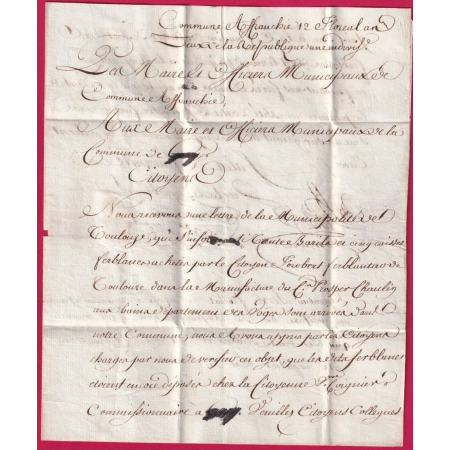 Commune Affranchie 12 floreal an
Deux de la Republique une indivisle.
Les Maire & Officiers Municipaux de
Commune Affranchie,
Aux Maire et Officiers Municipaux de la
Commune de
Citoyens
Nous recevons une lettre de la Municipalité de
Toulouse, qui s'informe si trente Barils et cinq caisses
ferblanc achetés par le Citoyen ferblantier de
Toulouse dans la Manufacture du Cn. Prosper
aux bains departement des Voges sont arrivés dans
notre Commune, nous avons appris par les Citoyens
chargés par nous de verifier cet objet, que lesdits ferblancs
etoient encore deposés chez la Citoyenne
Commissionnaire a Veuillés Citoyens Collegues